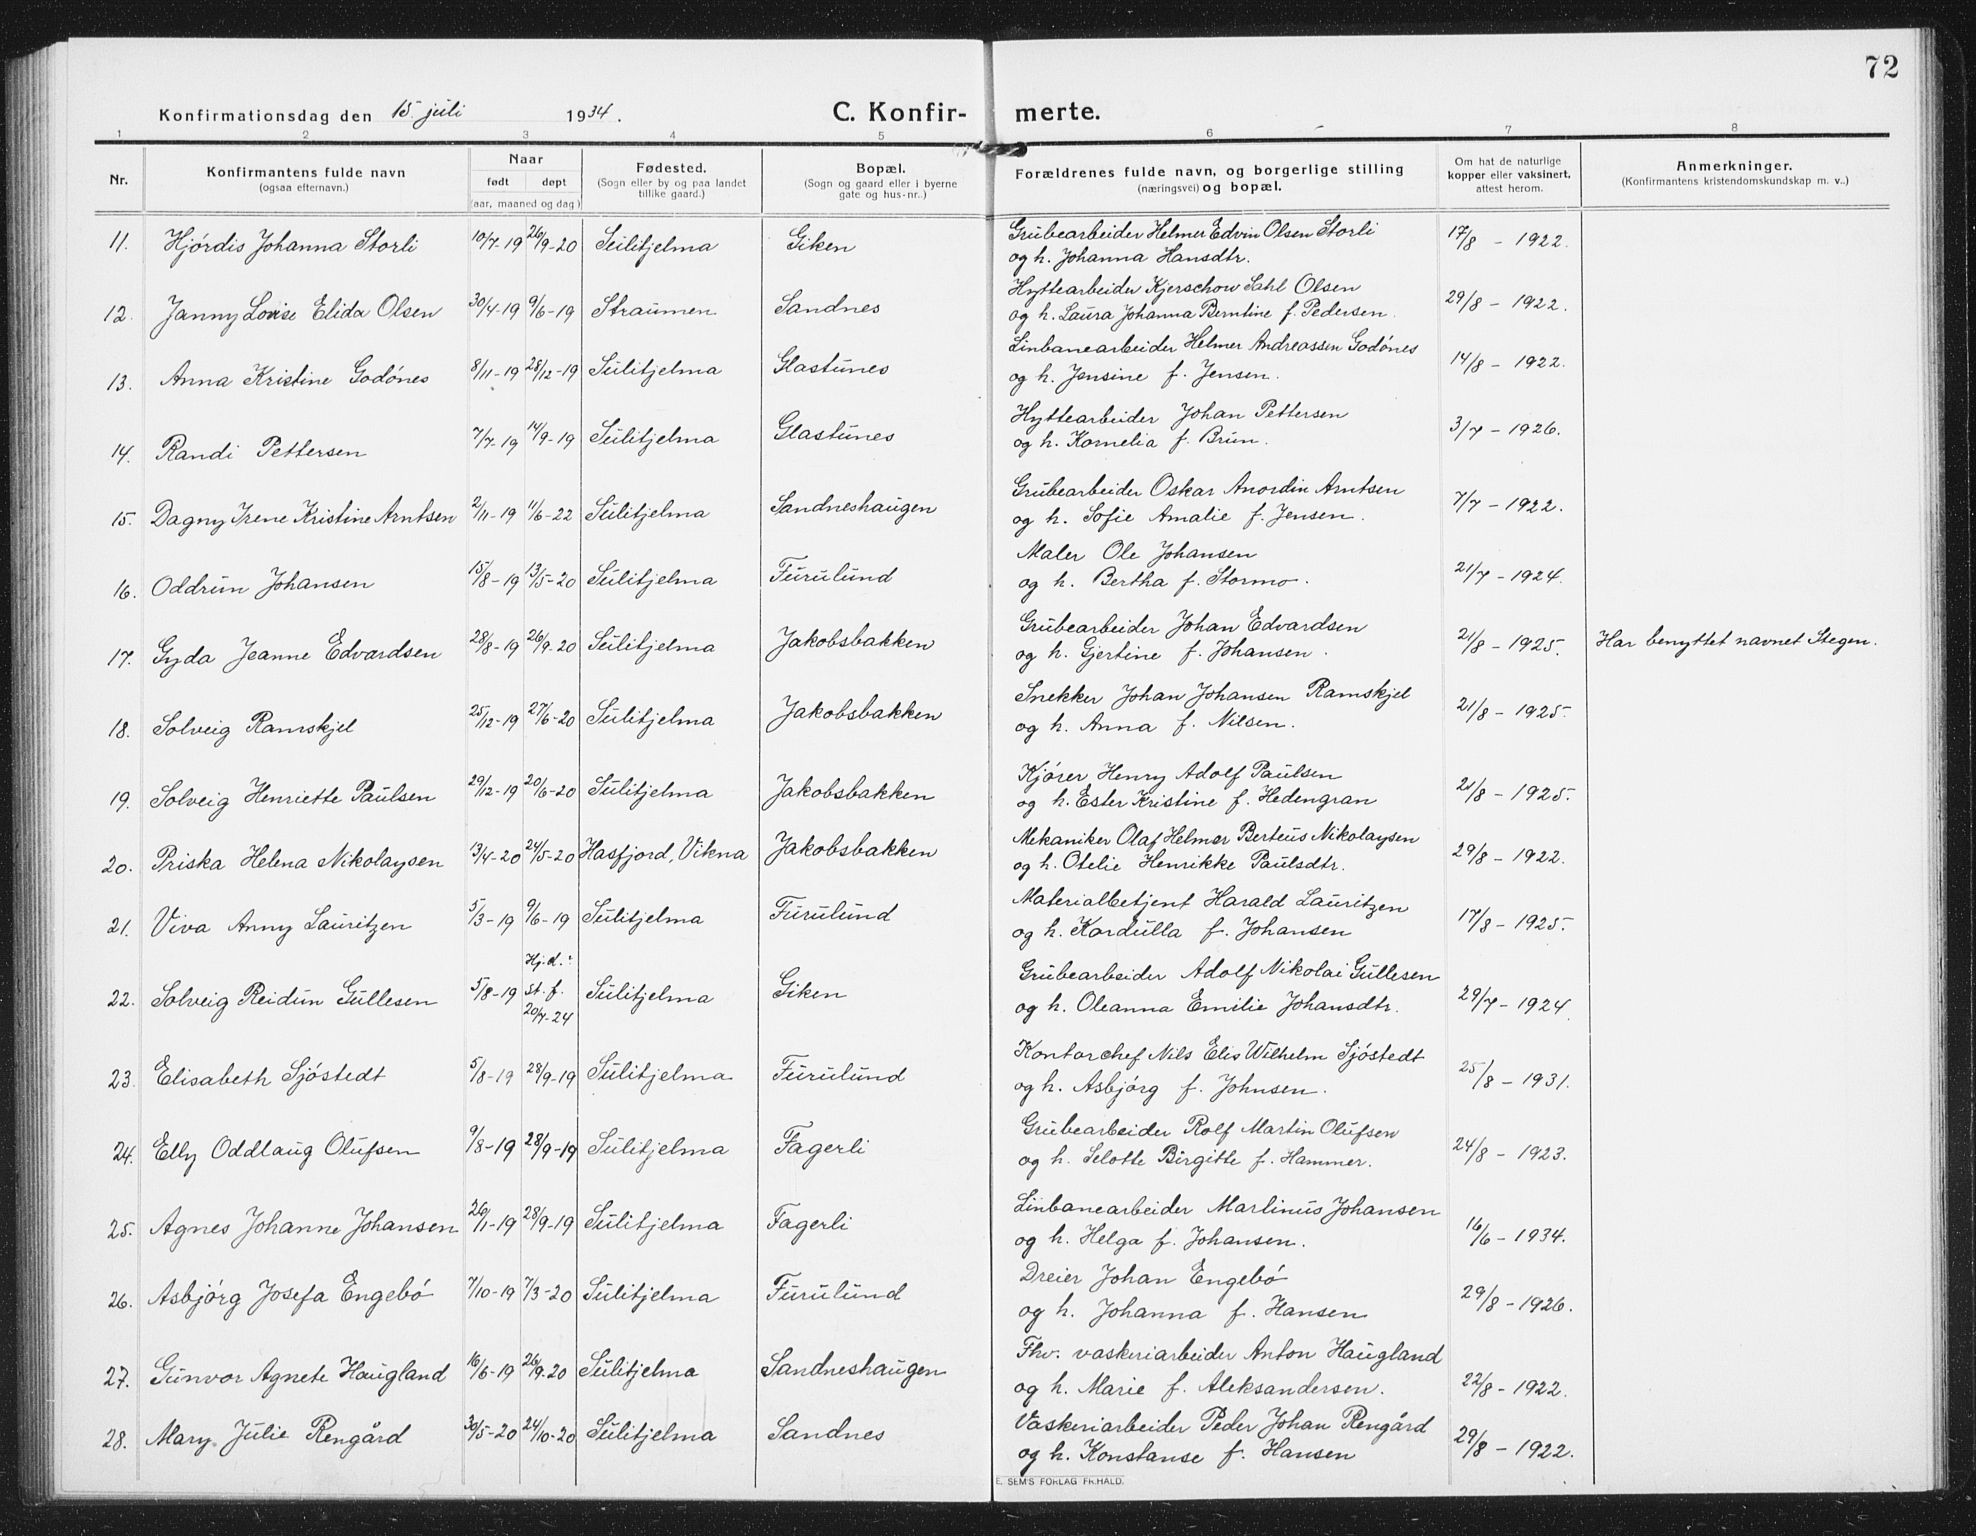 72
Konfirmationsdag den 15. juli 1934. C. Konfir- merte.
1 2 3 4 5 6 7 8
Nr. Konfirmantens fulde navn (ogsaa efternavn.) Naar født døpt (aar, maaned og dag) Fødested. (Sogn eller by og paa landet tillike gaard.) Bopæl. (Sogn og gaard eller i byerne gate og hus-nr..) Forældrenes fulde navn, og borgerlige stilling (næringsvei) og bopæl. Om hat de naturlige kopper eller vaksinert, attest herom. Anmerkninger. (Konfirmantens kristendomskundskap m. v..)
11. Hjørdis Johanna Storli 10/7-19 26/9-20 Sulitjelma Giken Grubearbeider Helmer Edvin Olsen Storli 17/8 - 1922.
og h. Johanna Hansdtr.
12. Janny Lovise Elida Olsen 30/4-19 9/6-19 Straumen Sandnes Hyttearbeider Kjerschow Sahl Olsen 29/8 - 1922.
og h. Laura Johanna Berntine f. Pedersen.
13. Anna Kristine Godønes 8/11-19 28/12-19 Sulitjelma Glastunes Linbanearbeider Helmer Andreassen Godønes 14/8 - 1922.
og h. Jensine f. Jensen.
14. Randi Pettersen 7/7-19 14/9-19 Sulitjelma Glastunes Hyttearbeider Johan Pettersen 3/7 - 1926.
og h. Kornelia f. Brun.
15. Dagny Irene Kristine Arntsen 2/11-19 11/6-22 Sulitjelma Sandneshaugen Grubearbeider Oskar Anordin Arntsen 7/7 - 1922.
og h. Sofie Amalie f. Jensen.
16. Oddrun Johansen 15/8-19 13/5-20 Sulitjelma Furulund Maler Ole Johansen 21/7 - 1924.
og h. Bertha f. Stormo.
17. Gyda Jeanne Edvardsen 28/8-19 26/9-20 Sulitjelma Jakobsbakken Grubearbeider Johan Edvardsen 21/8 - 1925. Har benyttet navnet Stegen.
og h. Gjertine f. Johansen.
18. Solveig Ramskjel 25/12-19 27/6-20 Sulitjelma Jakobsbakken Snekker Johan Johansen Ramskjel 21/8 - 1925.
og h. Anna f. Nilsen.
19. Solveig Henriette Paulsen 29/12-19 20/6-20 Sulitjelma Jakobsbakken Kjører Henry Adolf Paulsen 21/8 - 1925.
og h. Ester Kristine f. Hedengran
20. Priska Helena Nikolaysen 13/4-20 24/5-20 Hasfjord, Vikna Jakobsbakken Mekaniker Olaf Helmer Berteus Nikolaysen 29/8 - 1922.
og h. Otelie Henrikke Paulsdtr.
21. Viva Anny Lauritzen 5/3-19 9/6-19 Sulitjelma Furulund Materialbetjent Harald Lauritzen 17/8 - 1925.
og h. Kordulla f. Johansen
22. Solveig Reidun Gullesen 5/8-19 Hj.d.: st. f. 20/7-24 Sulitjelma Giken Grubearbeider Adolf Nikolai Gullesen 29/7 - 1924.
og h. Oleanna Emilie Johansdtr.
23. Elisabeth Sjøstedt 5/8-19 28/9-19 Sulitjelma Furulund Kontorchef Nils Elis Wilhelm Sjøstedt 25/8 - 1931.
og h. Asbjørg f. Johnsen.
24. Elly Oddlaug Olufsen 9/8-19 28/9-19 Sulitjelma Fagerli Grubearbeider Rolf Martin Olufsen 24/8 - 1923.
og h. Selotte Birgitte f. Hammer.
25. Agnes Johanne Johansen 26/1-19 28/9-19 Sulitjelma Fagerli Linbanearbeider Martinus Johansen 16/6 - 1934.
og h. Helga f. Johansen.
26. Asbjørg Josefa Engebø 7/10-19 7/3-20 Sulitjelma Furulund Dreier Johan Engebø 29/8 - 1926.
og h. Johanna f. Hansen
27. Gunvor Agnete Haugland 16/6-19 26/9-20 Sulitjelma Sandneshaugen Fhv. vaskeriarbeider Anton Haugland 22/8 - 1922.
og h. Marie f. Aleksandersen.
28. Mary Julie Rengård 30/5-20 24/10-20 Sulitjelma Sandnes Vaskeriarbeider Peder Johan Rengård 29/8 - 1922.
og h. Konstanse f. Hansen
E. SEM'S FORLAG FR.HALD.